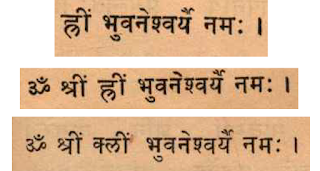 ह्रीं भुवनेश्वर्यै नमः ।
ॐ श्रीं ह्रीं भुवनेश्वर्यै नमः ।
ॐ श्रीं क्लीं भुवनेश्वर्यै नमः ।